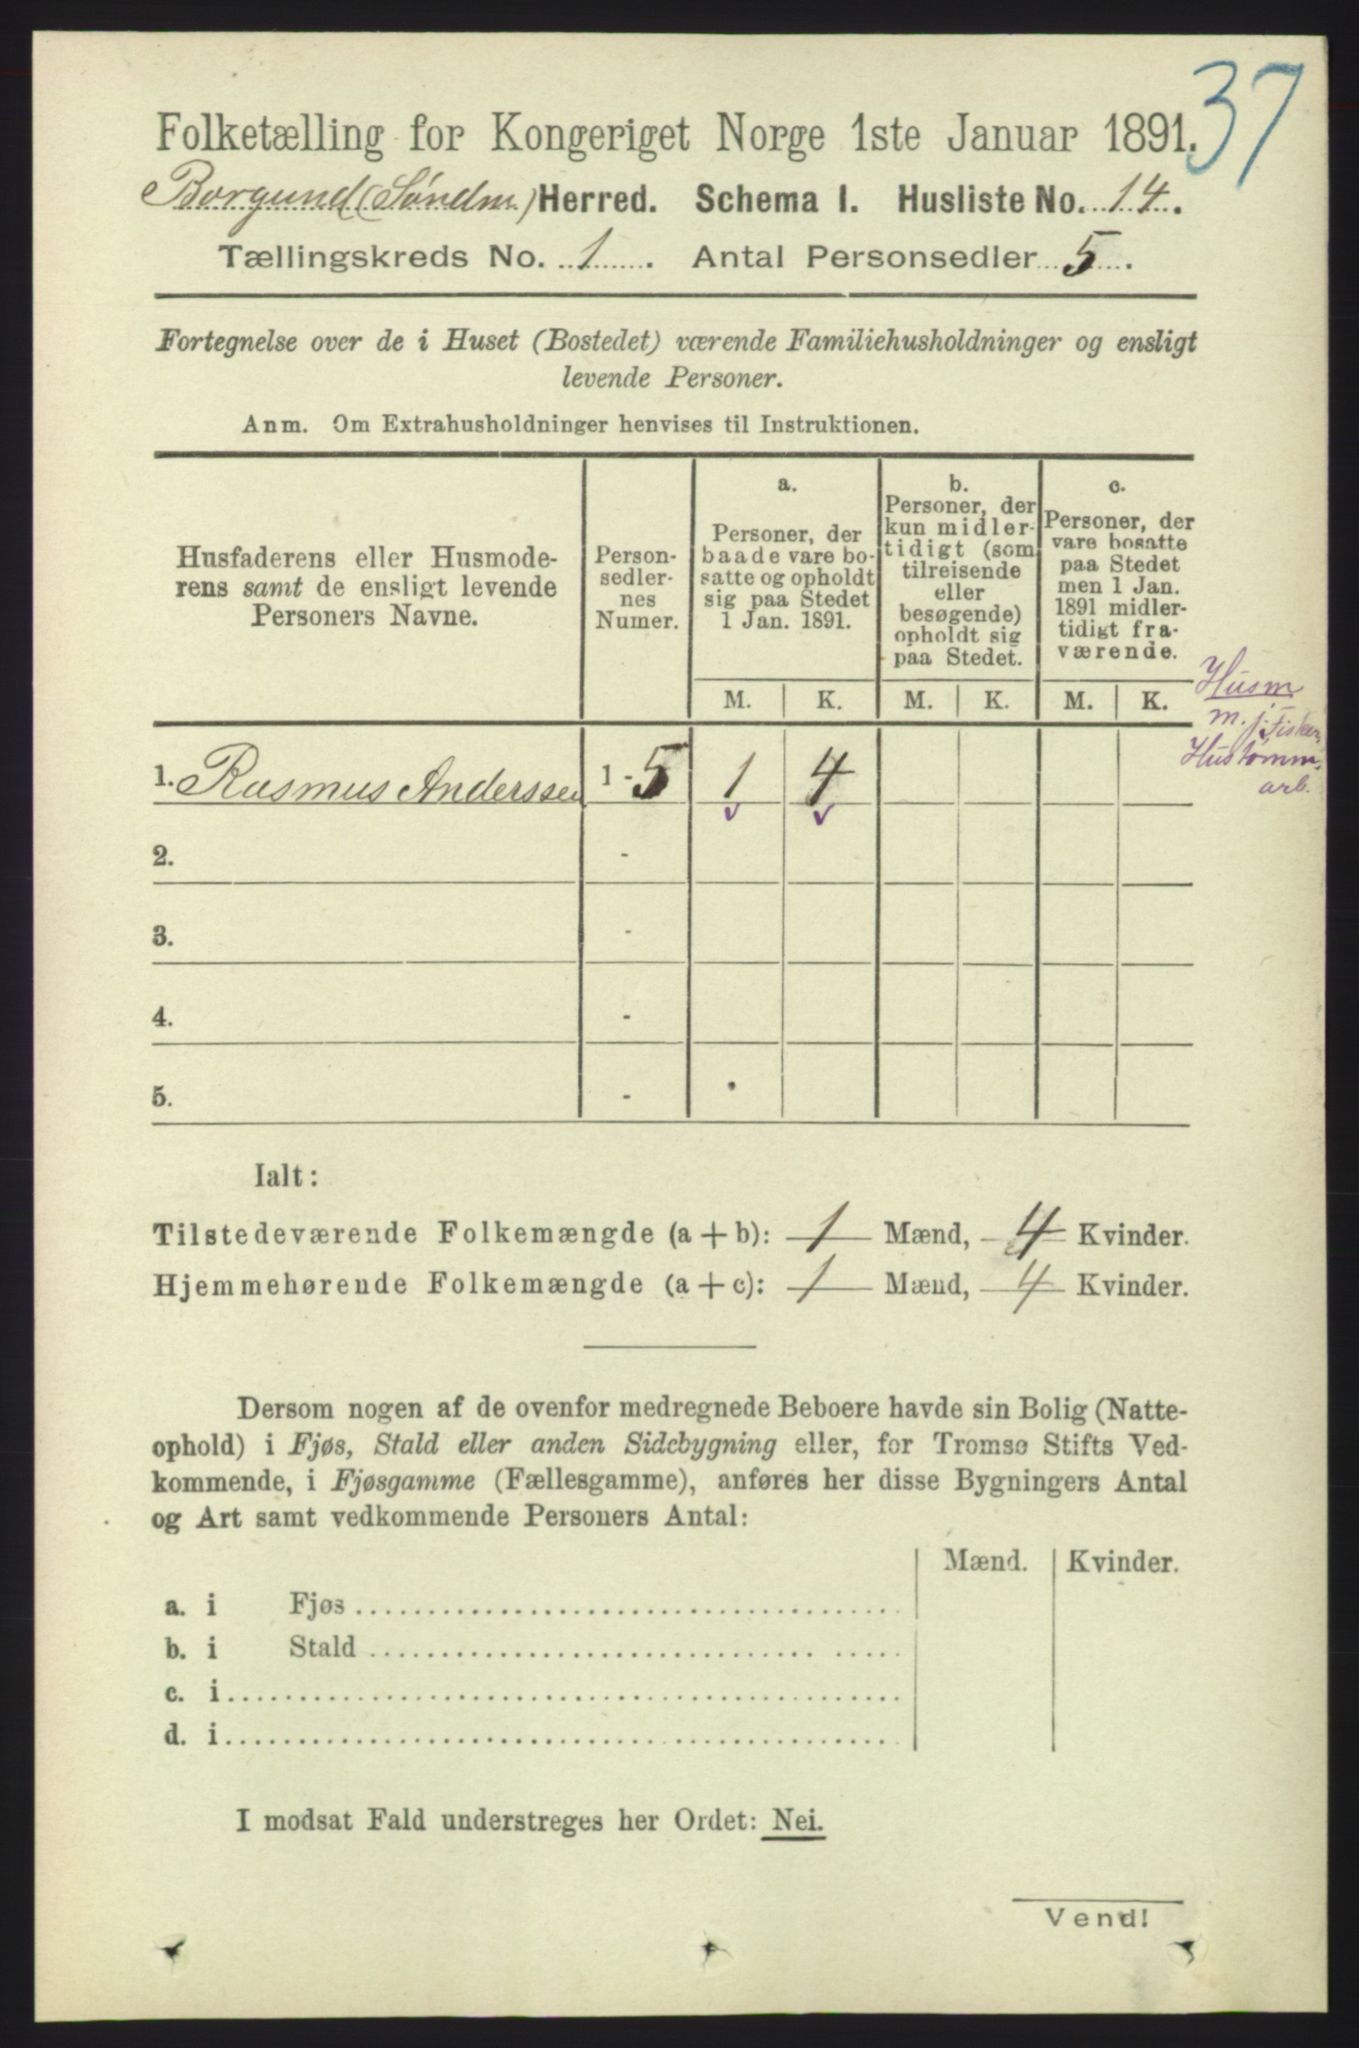 37
Folketælling for Kongeriget Norge 1ste Januar 1891.
Borgund (Søndm) Herred. Schema I. Husliste No. 14.
Tællingskreds No. 1. Antal Personsedler 5.
Fortegnelse over de i Huset (Bostedet) værende Familiehusholdninger og ensligt
levende Personer.
Anm. Om Extrahusholdninger henvises til Instruktionen.
Husfaderens eller Husmode-
rens samt de ensligt levende
Personers Navne.
Person-
sedler-
nes
Numer.
a.
Personer, der
baade vare bo-
satte og opholdt
sig paa Stedet
1 Jan. 1891.
b.
Personer, der
kun midler-
tidigt (som
tilreisende
eller
besøgende)
opholdt sig
paa Stedet.
c.
Personer, der
vare bosatte
paa Stedet
men 1 Jan.
1891 midler-
tidigt fra-
værende.
M. K. M. K. M. K.
Husm
m. j. Fisker,
Hustømm.
arb.
1. Rasmus Anderssen 1 - 5 1 4
2. -
3. -
4. -
5. -
Ialt:
Tilstedeværende Folkemængde (a + b): 1 Mænd, 4 Kvinder.
Hjemmehørende Folkemængde (a + c): 1 Mænd, 4 Kvinder.
Dersom nogen af de ovenfor medregnede Beboere havde sin Bolig (Natte-
ophold) i Fjøs, Stald eller anden Sidebygning eller, for Tromsø Stifts Ved-
kommende, i Fjøsgamme (Fællesgamme), anføres her disse Bygningers Antal
og Art samt vedkommende Personers Antal:
Mænd. Kvinder.
a. i Fjøs
b. i Stald
c. i
d. i
I modsat Fald understreges her Ordet: Nei.
Vend!